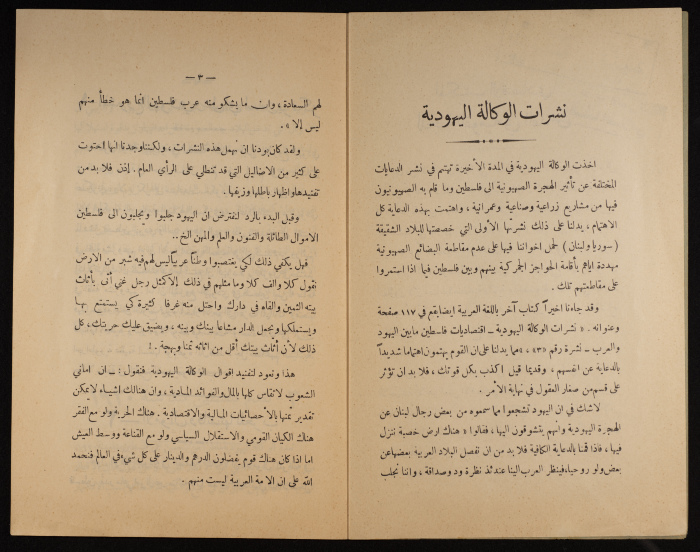 نشرات الوكالة اليهودية
اخذت الوكالة اليهودية في المدة الأخيرة تهتم في نشر الدعايات
المختلفة عن تأثير الهجرة الصهيونية الى فلسطين وما قام به الصهيونيون
فيها من مشاريع زراعية وصناعية وعمرانية ، واهتمت بهذه الدعاية كل
الاهتمام ، يدلنا على ذلك نشرتها الأولى التي خصصتها للبلاد الشقيقة
( سوريا ولبنان ) لحمل اخواننا فيها على عدم مقاطعة البضائع الصهيونية
مهددة اياهم بأقامة الحواجز الجمركية بينهم وبين فلسطين فيما اذا استمروا
على مقاطعتهم تلك .
وقد جاءنا اخيراً كتاب آخر باللغة العربية ايضا يقع في ١١٧ صفحة
وعنوانه . « نشرات الوكالة اليهودية – اقتصاديات فلسطين ما بين اليهود
والعرب – نشرة رقم «٣» ، مما يدلنا على ان القوم يهتمون اهتماما شديداً
بالدعاية عن انفسهم ، وقديما قيل اكذب بكل قوتك ، فلا بد ان تؤثر
على قسم من صغار العقول في نهاية الأمر .
لاشك في ان اليهود تشجعوا مما سمعوه من بعض رجال لبنان عن
الهجرة اليهودية وانهم يتشوقون اليها ، فقالوا « هناك ارض خصبة ننزل
فيها ، فاذا قمنا بالدعاية الكافية فلا بد من ان تفصل البلاد العربية بعضها عن
بعض ولو روحياً فينظر العرب الينا عندئذ نظرة ود وصداقة ، واننا نجلب
— ٣ —
لهم السعادة ، وان ما يشكو منه عرب فلسطين انما هو خطأ منهم
ليس إلا » .
ولقد كان بودنا ان نهمل هذه النشرات ، ولكننا وجدنا انها احتوت
على كثير من الاضاليل التي قد تنطلي على الرأي العام . إذن فلا بد من
تفنيدها واظهار باطلها وزيفها .
وقبل البدء بالرد لنفترض ان اليهود جلبوا ويجلبون الى فلسطين
الاموال الطائلة والفنون والعلم والمهن الخ ..
فهل يكفي ذلك لكي يغتصبوا وطناً عربياً ليس لهم فيه شبر من الارض
نقول كلا والف كلا وما مثلهم في ذلك إلا كمثل رجل غني أتى بأثاث
بيته الثمين والقاه في دارك واحتل منه غرفا كثيرة كي يستمتع بها
ويستملكها ويجعل الدار مشاعا بينك وبينه ، ويضيق عليك حريتك ، كل
ذلك لأن أثاث بيتك أقل من اثاثه ثمنا وبهجة . !
هذا ونعود لتفنيد اقوال الوكالة اليهودية فنقول : – ان اماني
الشعوب لا تقاس كلها بالمال والفوائد المادية ، وان هنالك اشياء لا يمكن
تقدير ثمنها بالأحصائيات المالية والاقتصادية . هناك الحرية ولو مع الفقر
هناك الكيان القومي والاستقلال السياسي ولو مع القناعة ووسط العيش
اما اذا كان هناك قوم يفضلون الدرهم والدينار على كل شيء في العالم فنحمد
الله على ان الامة العربية ليست منهم .